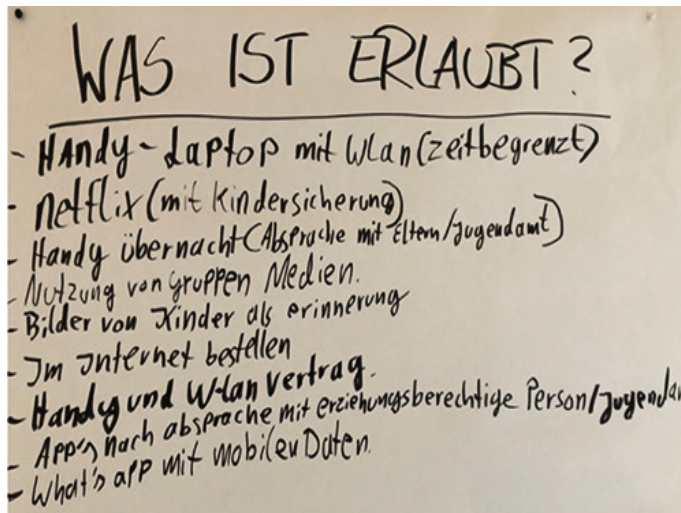 WAS IST ERLAUBT?
- Handy-Laptop mit Wlan (zeitbegrenzt)
- netflix (mit Kindersicherung)
- Handy übernacht (Absprache mit Eltern/Jugendamt)
- Nutzung von gruppen Medien.
- Bilder von Kinder als erinnerung
- Im Internet bestellen
- Handy und W-lan Vertrag.
- App's nach absprache mit erziehungsberechtige Person/
- What's app mit mobilen Daten.